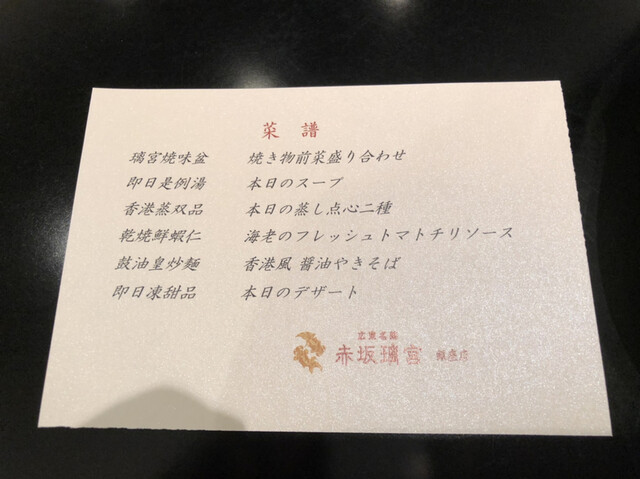 菜譜
璃宮焼味盆 焼き物前菜盛り合わせ
即日是例湯 本日のスープ
香港蒸双品 本日の蒸し点心二種
乾焼鮮蝦仁 海老のフレッシュトマトチリソース
鼓油皇炒麺 香港風 醤油やきそば
即日凍甜品 本日のデザート
広東名菜
赤坂璃宮 銀座店